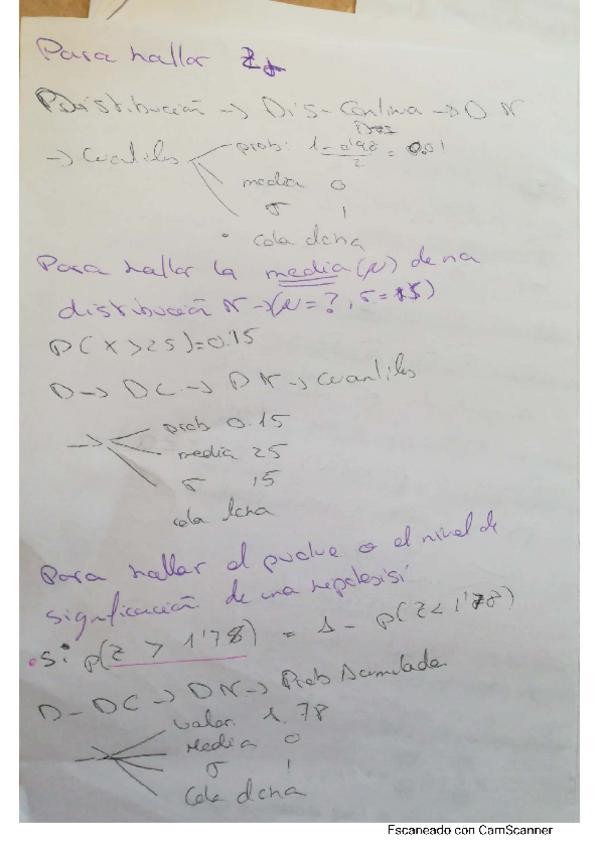 Para hallar Z
Distribución → Dis-Continua → D N
→ Cuantiles prob: 1-0'98 = 0.01
2
media 0
σ 1
cola dcha
Para hallar la media (μ) de na
distribución N → (μ = ?, σ = 15)
P(X > 25) = 0.15
D → DC → DN → Cuantiles
→ prob 0.15
media 25
σ 15
cola dcha
Para hallar el pvalue o el nivel de
significación de una hipotesisi
• Si P(Z > 1'78) = 1 - P(Z < 1'78)
D - DC → DN → Prob Acumulada
valor 1.78
Media 0
σ 1
Cola dcha
Escaneado con CamScanner